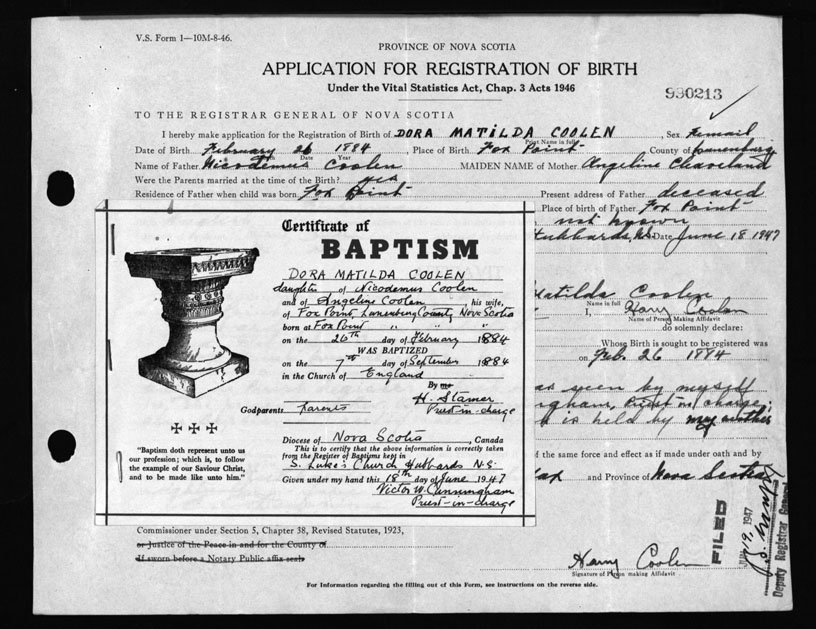 V.S. Form 1—10M-8-46.
PROVINCE OF NOVA SCOTIA
APPLICATION FOR REGISTRATION OF BIRTH
Under the Vital Statistics Act, Chap. 3 Acts 1946
990213
TO THE REGISTRAR GENERAL OF NOVA SCOTIA
I hereby make application for the Registration of Birth of DORA MATILDA COOLEN, Sex Femail
Print Name in full
Date of Birth February 26 1884, Place of Birth Fox Point County of Lunenburg
Month Date Year
Name of Father Nicodemus Coolen MAIDEN NAME of Mother Angeline Cleaveland
Were the Parents married at the time of the Birth? yes
Residence of Father when child was born Fox Point Present address of Father deceased
Place of birth of Father Fox Point
not known
Hubbards N.S. Date June 18 1947
Matilda Coolen
Name in full
I, Harry Coolen
Name of Person Making Affidavit
do solemnly declare:
Whose Birth is sought to be registered was
on Feb. 26 1884
as seen by myself
ngham, Priest in charge;
is held by my mother
of the same force and effect as if made under oath and by
fax and Province of Nova Scotia
Certificate of
BAPTISM
DORA MATILDA COOLEN
daughter of Nicodemus Coolen
and of Angeline Coolen, his wife,
of Fox Point, Lunenburg County, Nova Scotia
born at Fox Point " " "
on the 26th day of February 1884
WAS BAPTIZED
on the 7th day of September 1884
in the Church of England
By me
H. Stamer
Priest-in-charge
Godparents parents
Diocese of Nova Scotia, Canada
This is to certify that the above information is correctly taken
from the Register of Baptisms kept in
S. Luke's Church Hubbards N.S.
Given under my hand this 18th day of June 1947
Victor W. Cunningham
Priest-in-charge
"Baptism doth represent unto us
our profession; which is, to follow
the example of our Saviour Christ,
and to be made like unto him."
Commissioner under Section 5, Chapter 38, Revised Statutes, 1923,
or Justice of the Peace in and for the County of
If sworn before a Notary Public affix seal
Harry Coolen
Signature of Person making Affidavit
FILED
JUN 19, 1947
Deputy Registrar General
For information regarding the filling out of this Form, see instructions on the reverse side.